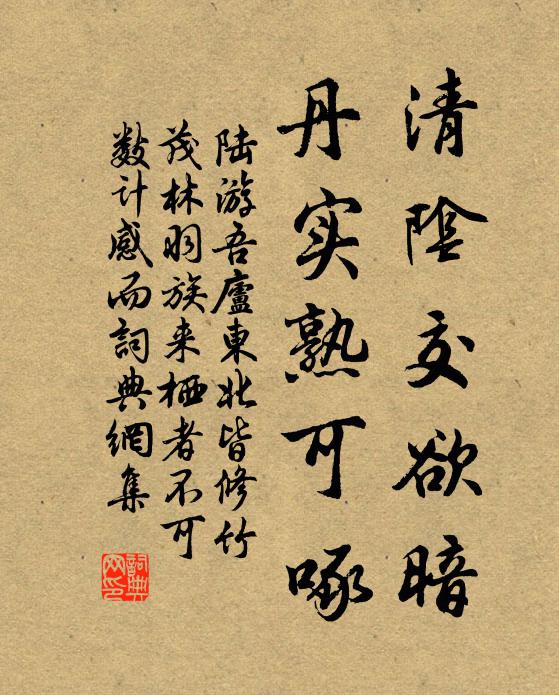 清陰交欲暗
丹实熟可啄
陆游吾廬東北皆修竹
茂林羽族来栖者不可
数计感而詞典網集
詞典
网印